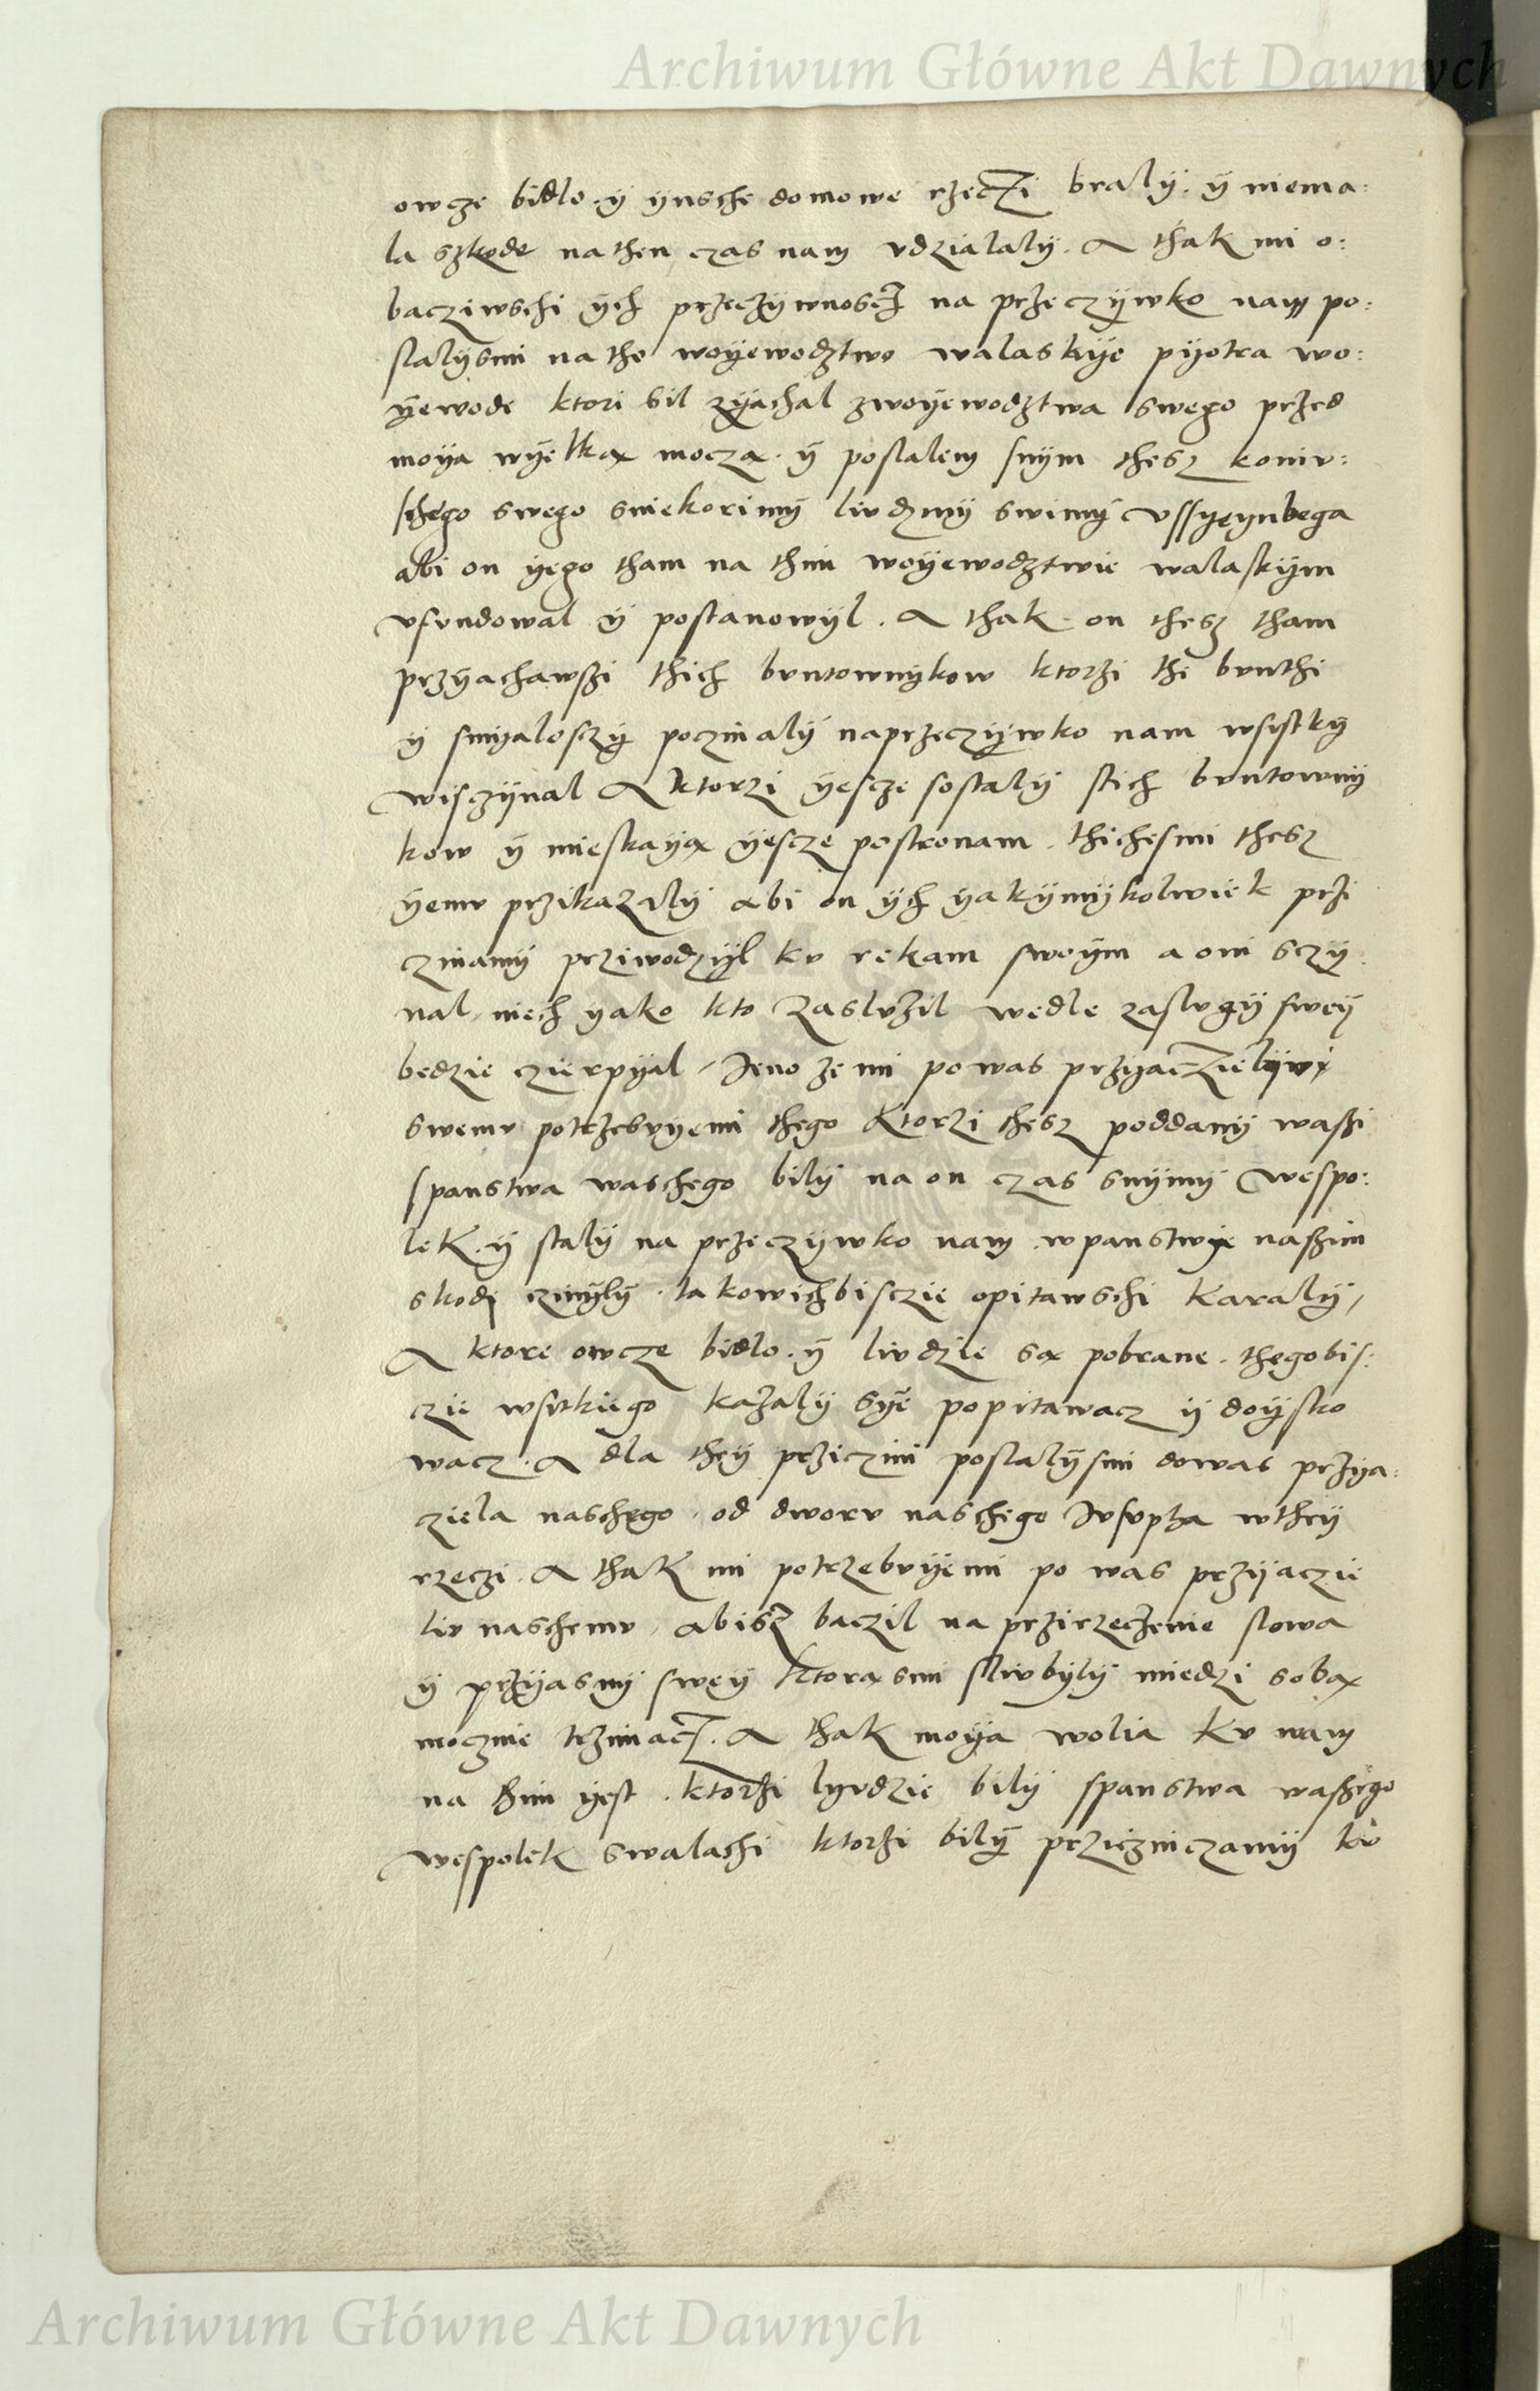 Archiwum Główne Akt Dawnych
owcze bidlo. ÿ ÿnsche domowe rzeczi bralÿ. ÿ niema:
la szkode nathen czas nam vdzialalÿ. A thak mi o:
bacziwschi ÿch przeczÿwnoscz na przeczÿwko nam po:
slalÿsmi natho woÿewodztwo walaskÿe pÿotra wo:
ÿewode ktori bil zÿachal zwoÿewodztwa swego przed
moÿa wÿelką moczą. ÿ poslalem snÿm thesz koniu:
schego swego sniekorimÿ liudzmÿ swimÿ Vssÿeÿnbega
abi on ÿego tham na thim woÿewodztwie walaskÿm
vfundowal ÿ postanowÿl. A thak on thesz tham
przÿachawszi thich buntownÿkow ktorzi the bunthi
ÿ smÿaloszÿ poczinalÿ naprzeczÿwko nam wsistkÿ
wisczÿnal A ktorzi ÿescze sostalÿ stich buntownÿ
kow ÿ mieskaÿą ÿescze postronam. thichesmi thesz
ÿemu przikazalÿ abi on ÿch ÿakÿmÿkolwiek przi
czinamÿ przÿwodzÿl ku rekam swoÿm a oni sczÿ
nal, niech ÿako kto zasluzil wedle zaslugÿ sweÿ
bedzie czierpÿal, Jeno ze mi powas przÿaczielÿwi
swemu potrzebuÿemi thego ktorzi thesz poddanÿ waszi
spanstwa waschego bilÿ na on czas snÿmÿ wespo:
lek. ÿ stalÿ na przeczÿwko nam wpanstwÿe naszim
skodi czinÿlÿ. takowichbisczie opitawschi karalÿ,
A ktore owcze bidlo. ÿ liudzie są pobrane. thegobis:
czie wsitkiego kazalÿ sÿe popitawacz ÿ doÿsko
wacz. A dla theÿ przÿczini poslalÿsmi dowas przÿa:
ziela naschego. od dworu naschego Jusupha wtheÿ
rzeczi. A thak mi potrzebuÿemi po was przÿaczie
liu naschemu, abisz baczil na przirzeczenie slowa
ÿ przÿasnÿ sweÿ ktorąsmi sliubÿlÿ miedzi sobą
mocznie trzimacz. A thak moÿa wolia ku wam
na thim ÿest. ktorzi lÿudzie bilÿ spanstwa waszego
wespolek swalachi ktorzi bilÿ prziczniczamÿ ku
Archiwum Główne Akt Dawnych